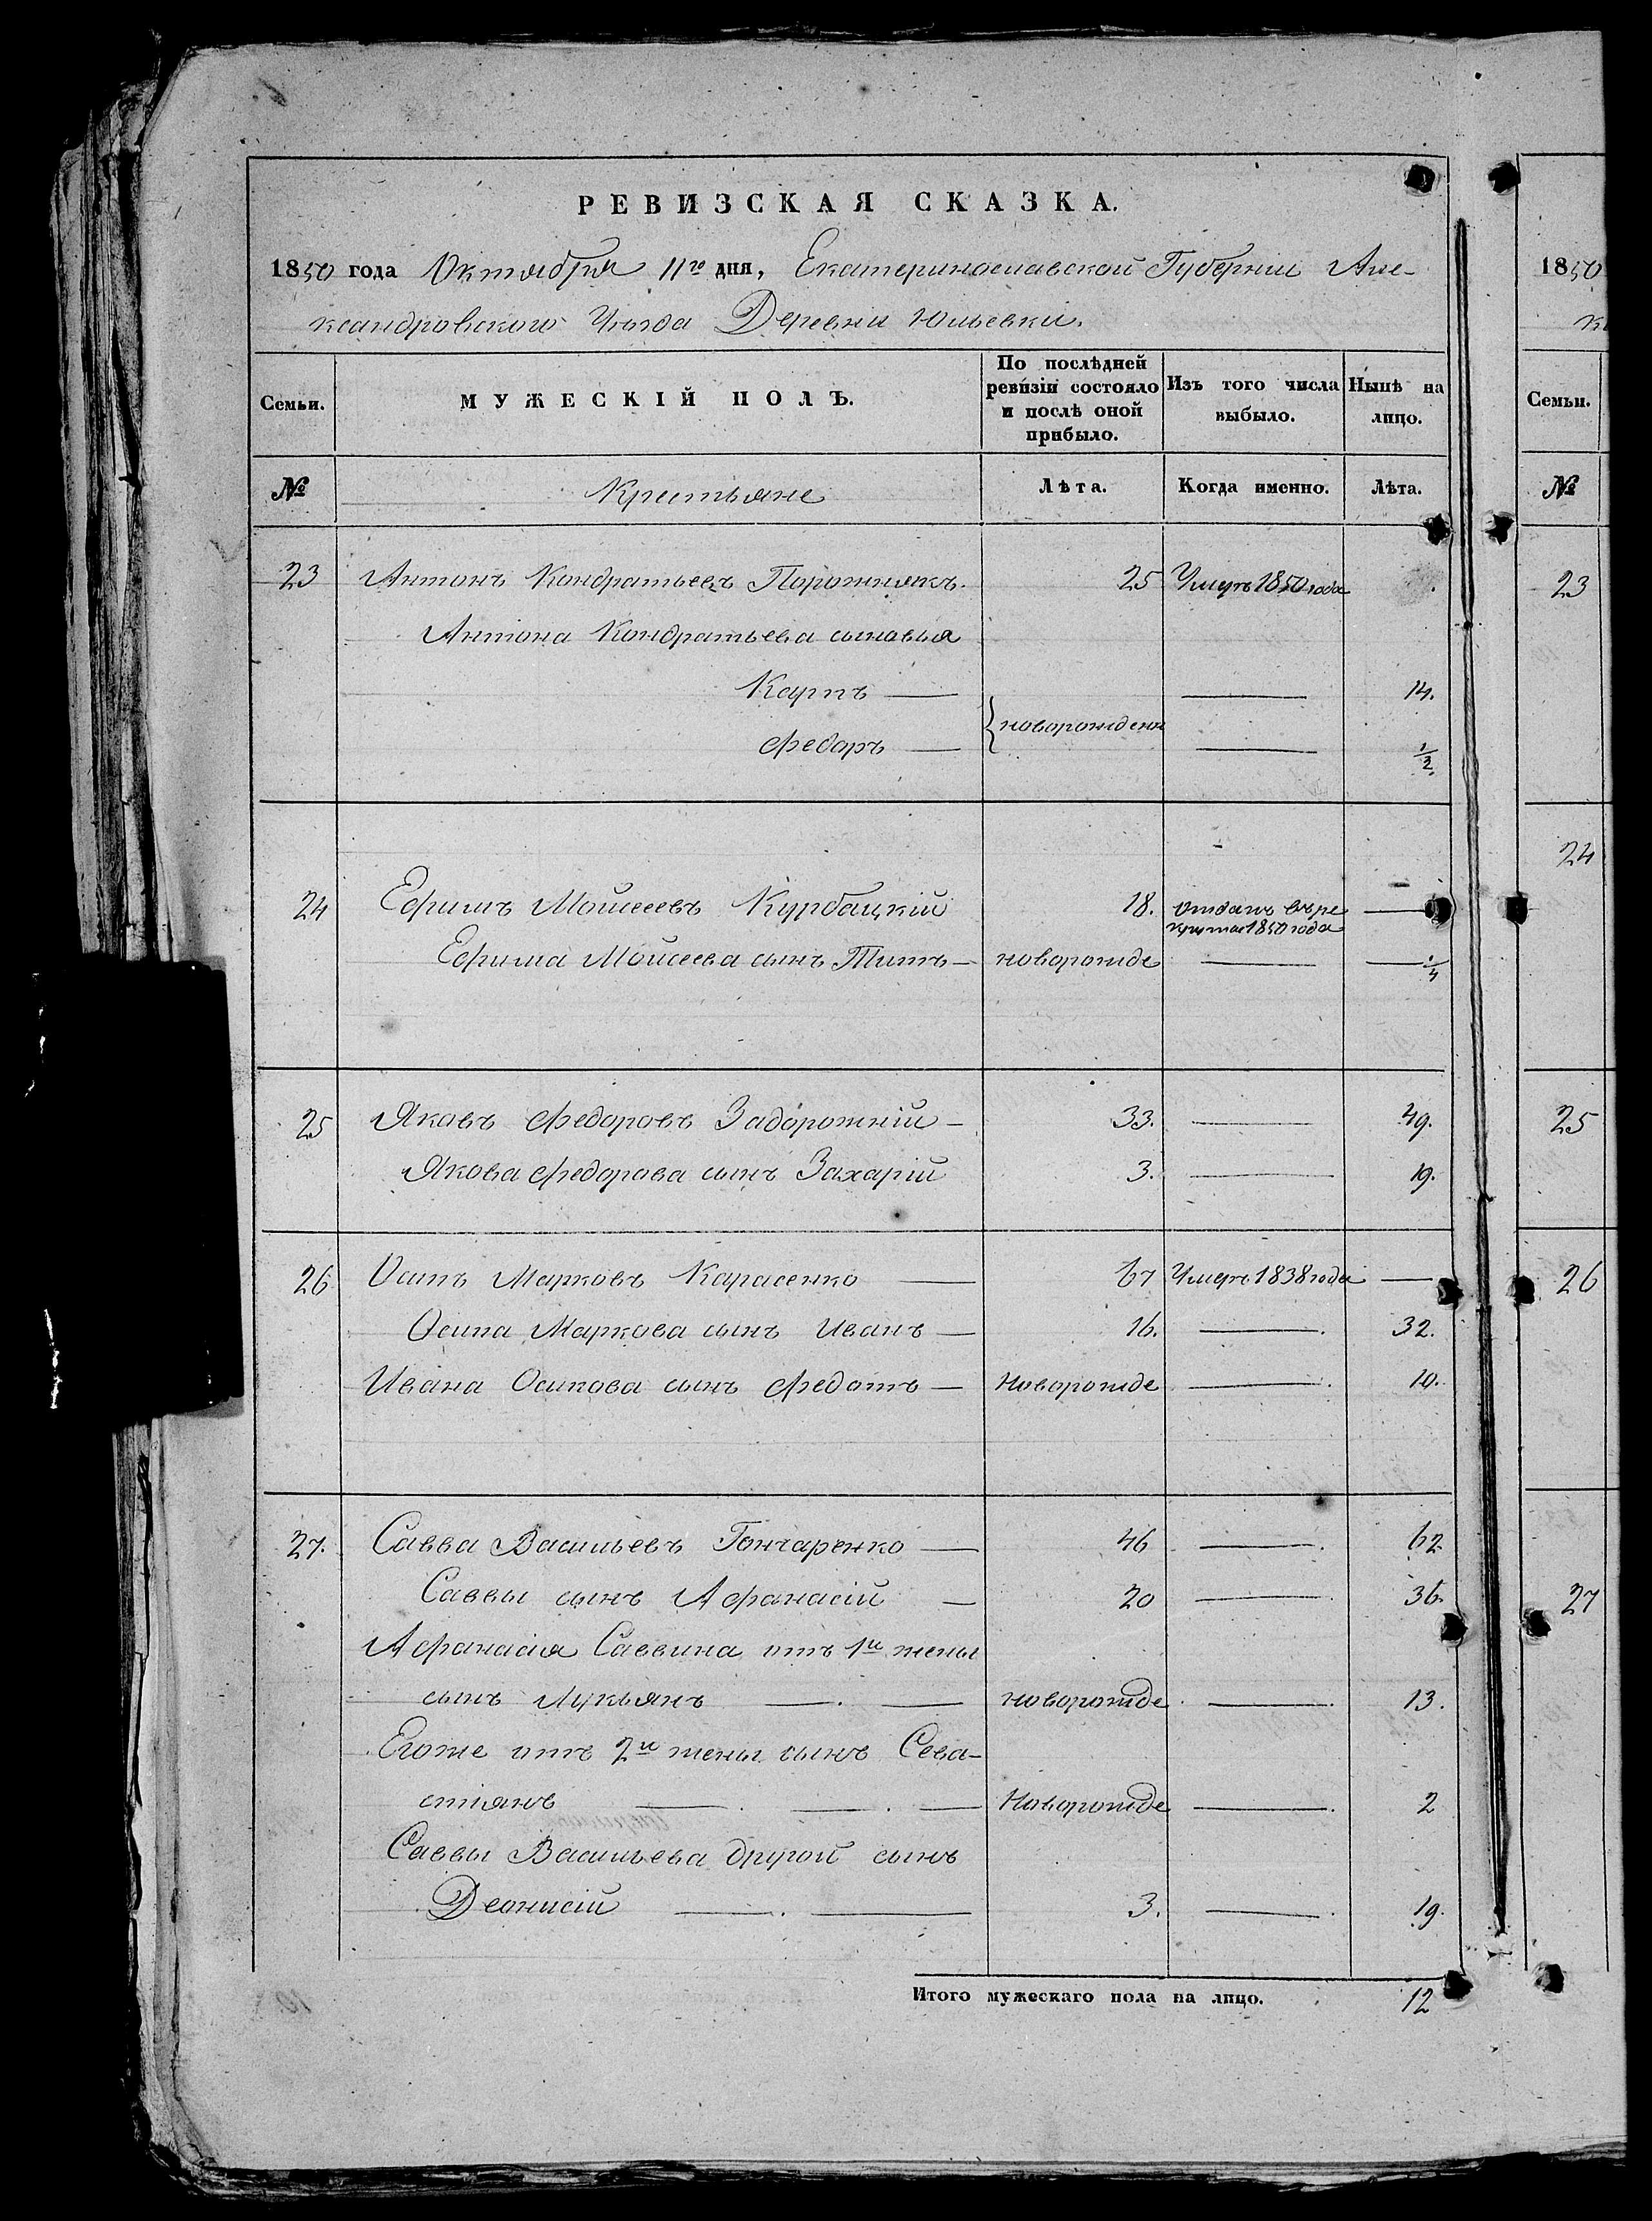 РЕВИЗСКАЯ СКАЗКА.
1850 года Октября 11го дня, Екатеринославской Губернiи Але-
ксандровского Уѣзда Деревни Юльевки.
Семьи. МУЖЕСКIЙ ПОЛЪ. По послѣдней ревизiи состояло и послѣ оной прибыло. Изъ того числа выбыло. Нынѣ на лицо.
№ Крестьяне Лѣта. Когда именно. Лѣта.
23 Антонъ Кондратьевъ Порожнякъ. 25 Умеръ 1850 года
Антона Кондратьева сыновья
Карпъ — 14.
новорожден
Федоръ — 1/2
24 Ефимъ Мойсеевъ Курбацкiй 18. отданъ въ ре
круты 1850 года —
Ефима Мойсеева сынъ Титъ — новорожде — 1/4
25 Яковъ Федоровъ Задорожнiй — 33. — 49.
Якова Федорова сынъ Захарiй 3. — 19.
26 Осипъ Марковъ Карасенко — 67 Умеръ 1838 года —
Осипа Маркова сынъ Иванъ — 16. — 32.
Ивана Осипова сынъ Федотъ — Новорожде — 10.
27. Савва Васильевъ Гончаренко — 46 — 62
Саввы сынъ Афанасiй — 20 — 36.
Афанасiя Саввина отъ 1й жены
сынъ Лукьянъ — новорожде — 13.
Егоже отъ 2й жены сынъ Сева-
стiянъ — Новорожде — 2
Саввы Васильева другой сынъ
Деонисiй — 3. — 19.
Итого мужескаго пола на лицо. 12
1850
Семьи.
№
23
24
25
26
27